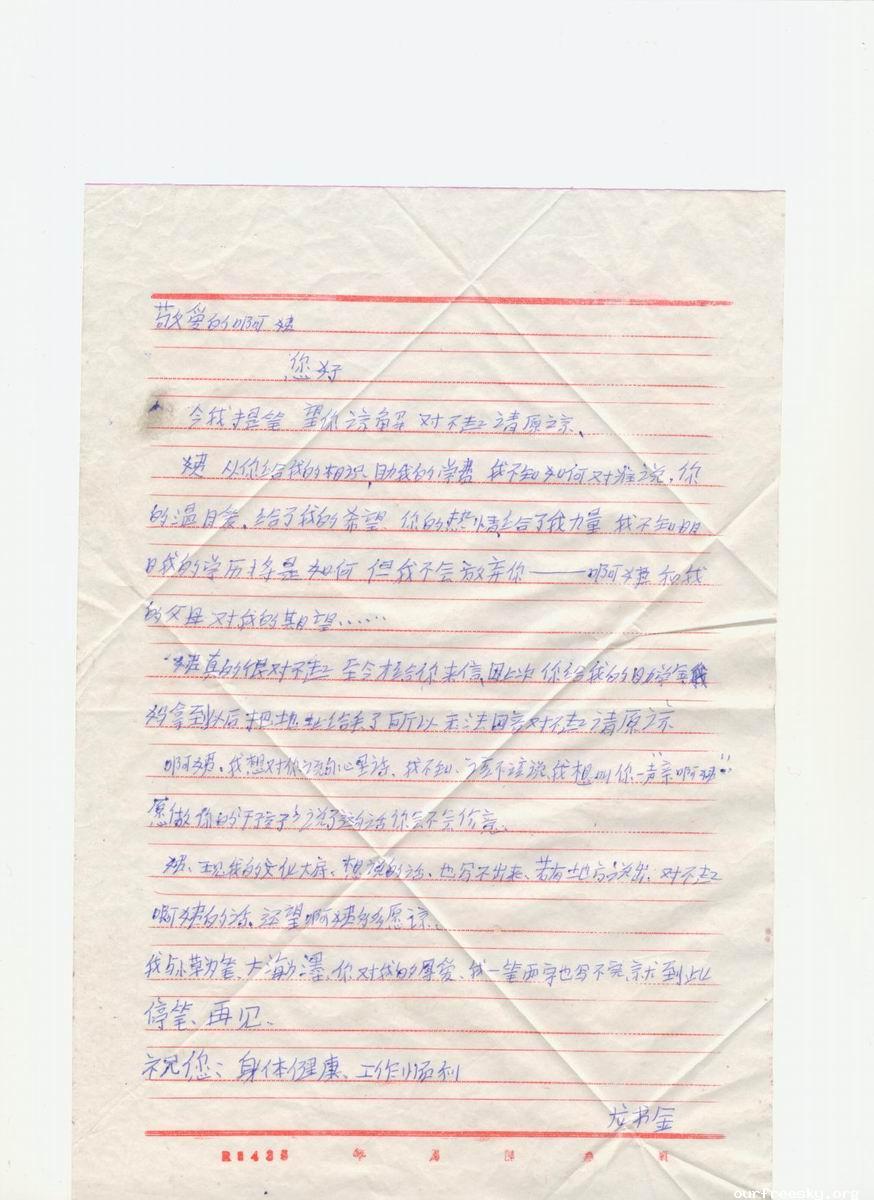 敬爱的啊姨
您好
今我提笔 望你谅解 对不起 请原谅、
姨 从你给我的相识、助我的学费 我不知如何对谁说,你
的温 给了我的希望 你的热情给了我力量 我不知明
日我的学历将是如何 但我不会放弃你——啊姨和我
的父母对我的期望……
姨真的很对不起 至今才给你来信,因上次你给我的助学金我
拿到以后把地址给 了所以未法回音对不起请原谅
啊姨、我想对你说句心里话、我不知、该不该说、我想叫你一声"亲啊姨"
愿做你的干孩子 说了这句话你会不会
姨、 我的文化 、想说的话、也写不出来、若有地方说出、对不起
啊姨的话、还望啊姨的多愿谅、
我与小草为笔、大海为墨、你对我的 爱、我一笔两字也写不完,就到此
停笔、再见、
祝您:身体健康、工作顺利
龙书金
R8435 年 月 日 第 页
ourfreesky.org